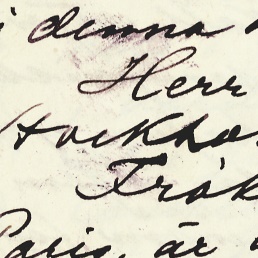 i denna
Herr
Stockho
Frök
Paris, är